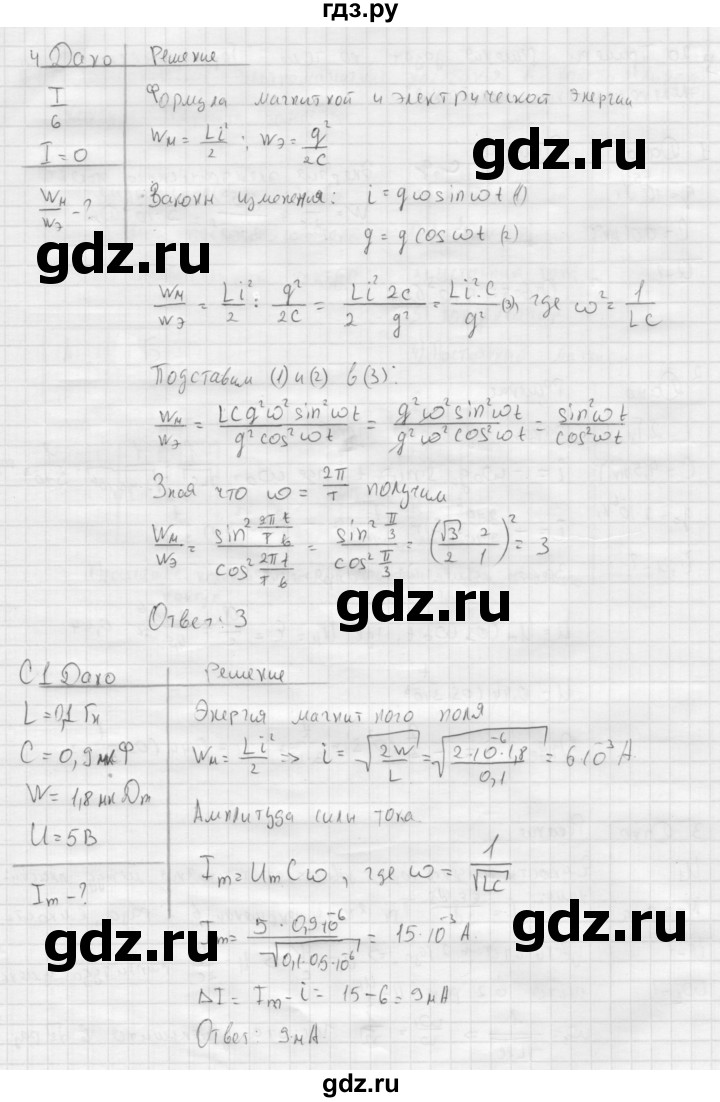 гдз.ру
4 Дано Решение
T/6
I = 0
Wм/Wэ - ?
Формула магнитной и электрической энергии
Wм = Li²/2 ; Wэ = q²/2C
Законы изменения: i = qω sin ωt (1)
q = q cos ωt (2)
Wм/Wэ = Li²/2 : q²/2C = Li² 2C/2 q² = Li²·C/q² (3), где ω² = 1/LC
Подставим (1) и (2) в (3):
Wм/Wэ = LCq²ω² sin² ωt/q² cos² ωt = q²ω² sin² ωt/q²ω² cos² ωt = sin² ωt/cos² ωt
Зная что ω = 2π/T получим
Wм/Wэ = sin² 2πt/T6/cos² 2πt/T6 = sin² π/3/cos² π/3 = (√3 2/2 1)² = 3
Ответ: 3
C1 Дано Решение
L = 0,1 Гн
C = 0,9 мкФ
W = 1,8 мкДж
U = 5 В
Im - ?
Энергия магнитного поля
Wм = Li²/2 => i = √(2W/L) = √(2·10⁻⁶·1,8/0,1) = 6·10⁻³ А
Амплитуда силы тока
Im = Um C ω, где ω = 1/√LC
Im = 5·0,9·10⁻⁶/√(0,1·0,9·10⁻⁶) = 15·10⁻³ А
ΔI = Im - i = 15 - 6 = 9 мА
Ответ: 9 мА
gdz.ru
gdz.ru
gdz.ru
gdz.ru
gdz.ru
gdz.ru
gdz.ru
gdz.ru
gdz.ru